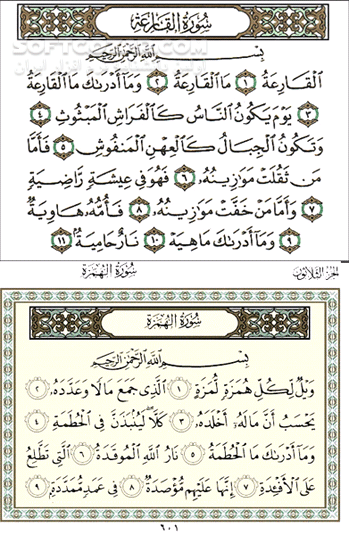 سُورَةُ القَارِعَةِ
بِسْمِ اللَّهِ الرَّحْمَٰنِ الرَّحِيمِ
الْقَارِعَةُ ١ مَا الْقَارِعَةُ ٢ وَمَا أَدْرَاكَ مَا الْقَارِعَةُ
٣ يَوْمَ يَكُونُ النَّاسُ كَالْفَرَاشِ الْمَبْثُوثِ ٤
وَتَكُونُ الْجِبَالُ كَالْعِهْنِ الْمَنفُوشِ ٥ فَأَمَّا
مَن ثَقُلَتْ مَوَازِينُهُ ٦ فَهُوَ فِي عِيشَةٍ رَّاضِيَةٍ
٧ وَأَمَّا مَنْ خَفَّتْ مَوَازِينُهُ ٨ فَأُمُّهُ هَاوِيَةٌ
٩ وَمَا أَدْرَاكَ مَا هِيَهْ ١٠ نَارٌ حَامِيَةٌ ١١
الجزء الثلاثون
سُورَةُ الهُمَزَةِ
سُورَةُ الهُمَزَةِ
بِسْمِ اللَّهِ الرَّحْمَٰنِ الرَّحِيمِ
وَيْلٌ لِّكُلِّ هُمَزَةٍ لُّمَزَةٍ ١ الَّذِي جَمَعَ مَالًا وَعَدَّدَهُ ٢
يَحْسَبُ أَنَّ مَالَهُ أَخْلَدَهُ ٣ كَلَّا لَيُنبَذَنَّ فِي الْحُطَمَةِ ٤
وَمَا أَدْرَاكَ مَا الْحُطَمَةُ ٥ نَارُ اللَّهِ الْمُوقَدَةُ ٦ الَّتِي تَطَّلِعُ
عَلَى الْأَفْئِدَةِ ٧ إِنَّهَا عَلَيْهِم مُّؤْصَدَةٌ ٨ فِي عَمَدٍ مُّمَدَّدَةٍ ٩
٦٠١